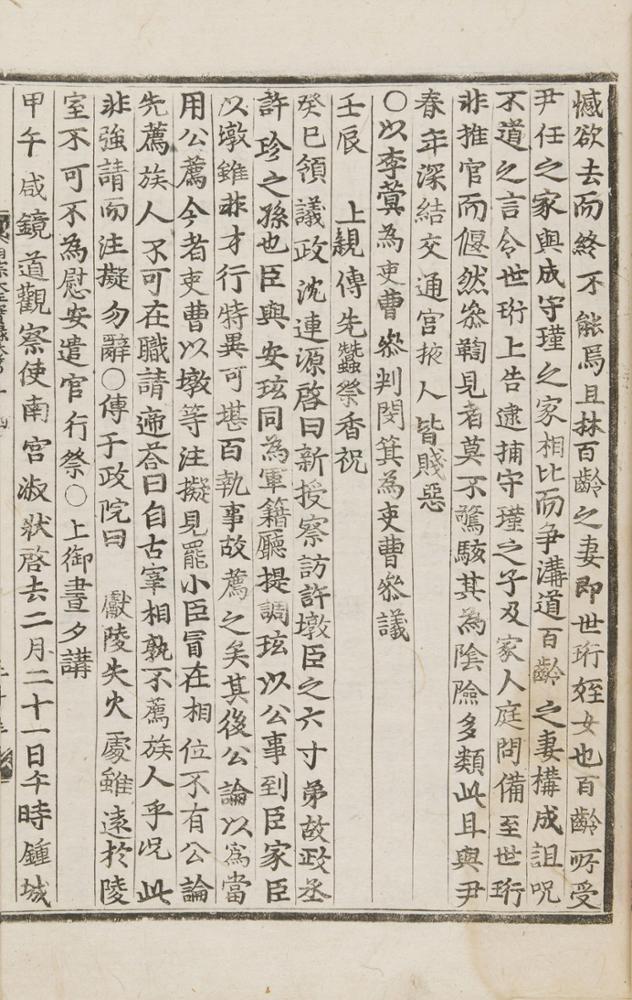 憾欲去而終不能焉且林百齡之妻即世珩姪女也百齡所受
尹任之家與成守瑾之家相比而爭溝道百齡之妻構成詛呪
不道之言令世珩上告逮捕守瑾之子及家人庭問備至世珩
非推官而偃然叅鞫見者莫不驚駭其為陰險多類此且與尹
春年深結交通宮掖人皆賤惡
○以李蓂為吏曹叅判閔箕為吏曹叅議
壬辰 上親傳先蠶祭香祝
癸巳領議政沈連源啓曰新授察訪許墩臣之六寸弟故政丞
許珍之孫也臣與安玹同為軍籍廳提調玹以公事到臣家臣
以墩雖非才行特異可堪百執事故薦之矣其後公論以為當
用公薦今者吏曹以墩等注擬見罷小臣冒在相位不有公論
先薦族人不可在職請遞荅曰自古宰相孰不薦族人乎況此
非強請而注擬勿辭○傳于政院曰 獻陵失火處雖遠於陵
室不可不為慰安遣官行祭○上御晝夕講
甲午咸鏡道觀察使南宮淑狀啓去二月二十一日午時鍾城